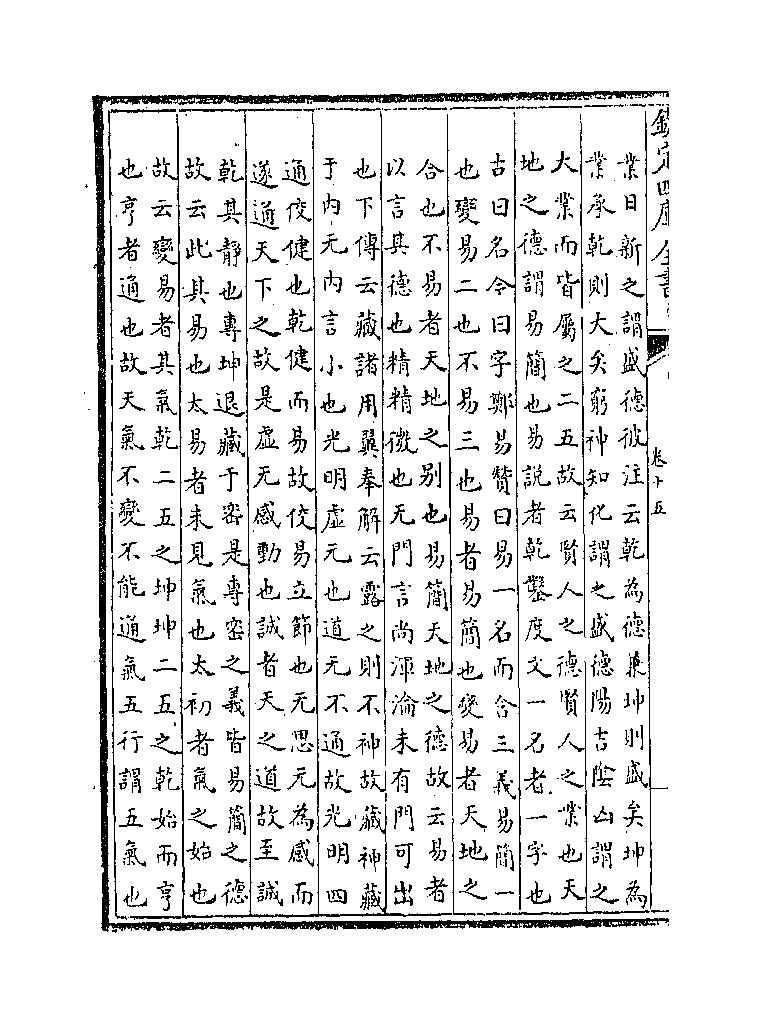 欽定四庫全書
卷十五
業日新之謂盛德彼注云乾為德兼坤則盛矣坤為
業承乾則大矣窮神知化謂之盛德陽吉陰凶謂之
大業而皆屬之二五故云賢人之德賢人之業也天
地之德謂易簡也易説者乾鑿度文一名者一字也
古曰名今曰字鄭易贊曰易一名而含三義易簡一
也變易二也不易三也易者易簡也變易者天地之
合也不易者天地之别也易簡天地之德故云易者
以言其德也精精微也无門言尚渾淪未有門可出
也下傳云藏諸用翼奉解云露之則不神故藏神藏
于内无内言小也光明虚无也道无不通故光明四
通佼健也乾健而易故佼易立節也无思无為感而
遂通天下之故是虚无感動也誠者天之道故至誠
乾其靜也專坤退藏于宻是專宻之義皆易簡之德
故云此其易也太易者未見氣也太初者氣之始也
故云變易者其氣乾二五之坤坤二五之乾始而亨
也亨者通也故天氣不變不能通氣五行謂五氣也